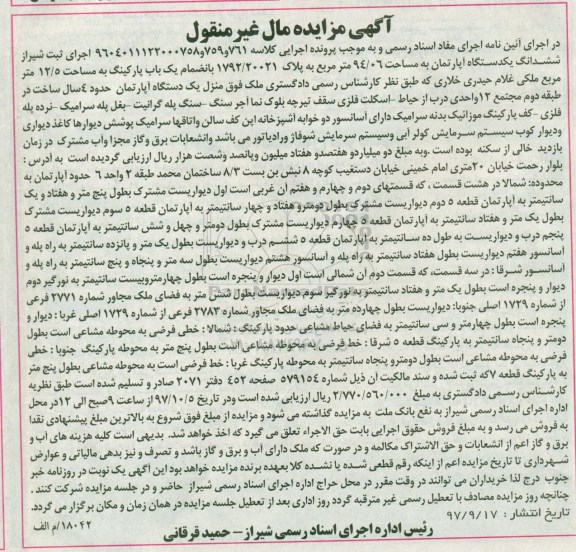 آگهی مزایده مال غیر منقول
در اجرای آئین نامه اجرای مفاد اسناد رسمی و به موجب پرونده اجرایی کلاسه ۷۶۱و۷۵۹و۹۶۰۴۰۱۱۱۲۲۰۰۰۷۵۸ اجرای ثبت شیراز
ششدانگ یکدستگاه آپارتمان به مساحت ۹۴/۰۶ متر مربع به پلاک ۱۷۹۲/۲۰۰۲۱ بانضمام یک باب پارکینگ به مساحت ۱۲/۵ متر
مربع ملکی غلام حیدری خلاری که طبق نظر کارشناس رسمی دادگستری ملک فوق منزل یک دستگاه آپارتمان حدود ۴سال ساخت در
طبقه دوم مجتمع ۱۲واحدی درب از حیاط -اسکلت فلزی سقف تیرچه بلوک نما آجر سنگ -سنگ پله گرانیت -بغل پله سرامیک -نرده پله
فلزی -کف پارکینگ موزائیک بدنه سرامیک دارای آسانسور دو خوابه آشپزخانه این کف سالن واتاقها سرامیک پوشش دیوارها کاغذ دیواری
ودیوار کوب سیستم سرمایش کولر آبی وسیستم سرمایش شوفاژ ورادیاتور می باشد وانشعابات برق وگاز مجزا واب مشترک در زمان
بازدید خالی از سکنه بوده است .وبه مبلغ دو میلیاردو هفتصدو هفتاد میلیون وپانصد وشصت هزار ریال ارزیابی گردیده است به ادرس :
بلوار رحمت خیابان ۲۰متری امام خمینی خیابان دستغیب کوچه ۸ نبش بن بست ۸/۳ ساختمان محمد طبقه ۲ واحد ۶ حدود آپارتمان به
محدوده: شمالا در هشت قسمت ، که قسمتهای دوم و چهارم و هفتم آن غربی است اول دیواریست مشترک بطول پنج متر و هفتاد و یک
سانتیمتر به آپارتمان قطعه ۵ دوم دیواریست مشترک بطول دومترو هفتاد و چهار سانتیمتر به آپارتمان قطعه ۵ سوم دیواریست مشترک
بطول یک متر و هفتاد سانتیمتر به آپارتمان قطعه ۵ چهارم دیواریست مشترک بطول دومتر و چهل و شش سانتیمتر به آپارتمان قطعه ۵
پنجم درب و دیواریست به طول ده سانتیمتر به آپارتمان قطعه ۵ ششم درب و دیواریست بطول یک متر و پانزده سانتیمتر به راه پله و
آسانسور هفتم دیواریست بطول هفتاد سانتیمتر به راه پله و آسانسور هشتم دیواریست بطول سه متر و پنجاه و پنج سانتیمتر به راه پله و
آسانسور شرقا : در سه قسمت، که قسمت دوم آن شمالی است اول دیوار و پنجره است بطول چهارمتروبیست سانتیمتر به نورگیر دوم
دیوار و پنجره است بطول یک متر و هفتاد سانتیمتر به نورگیر سوم دیواریست بطول شش متر به فضای ملک مجاور شماره ۲۷۷۱ فرعی
از شماره ۱۷۲۹ اصلی جنوبا: دیواریست بطول چهارده متر به فضای ملک مجاور شماره ۲۷۸۳ فرعی از شماره ۱۷۲۹ اصلی غربا : دیوار و
پنجره است بطول چهارمتر و سی سانتیمتر به فضای حیاط مشاعی حدود پارکینگ : شمالا : خطی فرضی به محوطه مشاعی است بطول
دومتر و پنجاه سانتیمتر به پارکینگ قطعه ۵ شرقا : خط فرضی به محوطه مشاعی است بطول پنج متر به محوطه پارکینگ جنوبا : خطی
فرضی به محوطه مشاعی است بطول دومترو پنجاه سانتیمتر به محوطه پارکینگ غربا : خط فرضی است به محوطه مشاعی بطول پنج متر
به پارکینگ قطعه ۷که ثبت شده و سند مالکیت ان ذیل شماره ۵۷۹۱۵۴ صفحه ۴۵۲ دفتر ۲۰۷۱ صادر و تسلیم شده است طبق نظریه
کارشناس رسمی دادگستری به مبلغ ۲/۷۷۰/۵۶۰/۰۰۰ ریال ارزیابی شده است ودر تاریخ ۹۷/۱۰/۵ از ساعت ۹صبح الی ۱۲در محل
اداره اجرای اسناد رسمی شیراز به نفع بانک ملت به مزایده گذاشته می شود و مزایده از مبلغ فوق شروع به بالاترین مبلغ پیشنهادی نقدا
به فروش می رسد و به مبلغ فروش حقوق اجرایی بابت حق الاجراء تعلق می گیرد که اخذ خواهد شد. بدیهی است کلیه هزینه های آب و
برق و گاز اعم از انشعابات و حق الاشتراک مکالمه و در صورت که ملک دارای آب و برق و گاز باشد و تصرف و نیز بدهی مالیاتی و عوارض
شهرداری تا تاریخ مزایده اعم از اینکه رقم قطعی شده یا نشده کلا بعهده برنده مزایده خواهد بود این آگهی یک نوبت در روزنامه خبر
جنوب درج لذا خریداران می توانند در وقت مقرر در محل حراج اداره اجرای اسناد رسمی شیراز حاضر و در جلسه مزایده شرکت کنند .
چنانچه روز مزایده مصادف با تعطیل رسمی غیر مترقبه گردد روز اداری بعد از تعطیل جلسه مزایده در همان زمان و مکان برگزار می گردد.
تاریخ انتشار : ۹۷/۹/۱۷
۱۸۰۴۲/م الف
رئیس اداره اجرای اسناد رسمی شیراز - حمید قرقانی